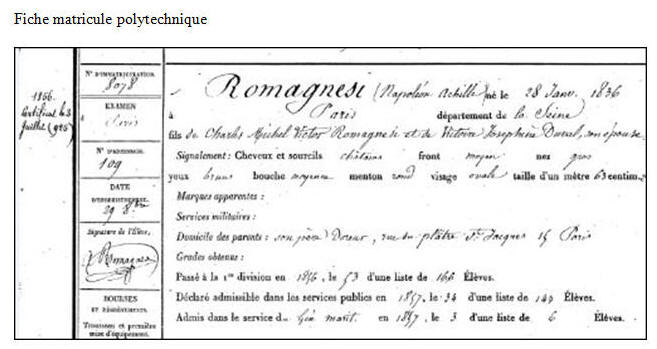 Fiche matricule polytechnique
1856.
Certificat le 3
Juillet (925)
N° D'IMMATRICULATION.
8078
EXAMEN
à Paris
N° D'ADMISSION.
109
DATE
29 8bre
Signature de l'Élève.
Romagnesi
BOURSES
ET DÉGRÈVEMENTS.
Trousseau et première
mise d'équipement.
Romagnesi (Napoléon Achille) né le 28 Janv. 1836
à Paris département de la Seine
fils de Charles Michel Victor Romagnesi et de Victoire Joséphine Duval, son épouse.
Signalement: Cheveux et sourcils châtains front moyen nez gros
yeux bruns bouche moyenne menton rond visage ovale taille d'un mètre 63 centim.
Marques apparentes :
Services militaires :
Domicile des parents : son père Doreur, rue du plâtre St. Jacques 15 Paris
Grades obtenus :
Passé à la 1re division en 1856, le 53 d'une liste de 166 Élèves.
Déclaré admissible dans les services publics en 1857, le 34 d'une liste de 149 Élèves.
Admis dans le service du Gén marit. en 1857, le 3 d'une liste de 6 Élèves.